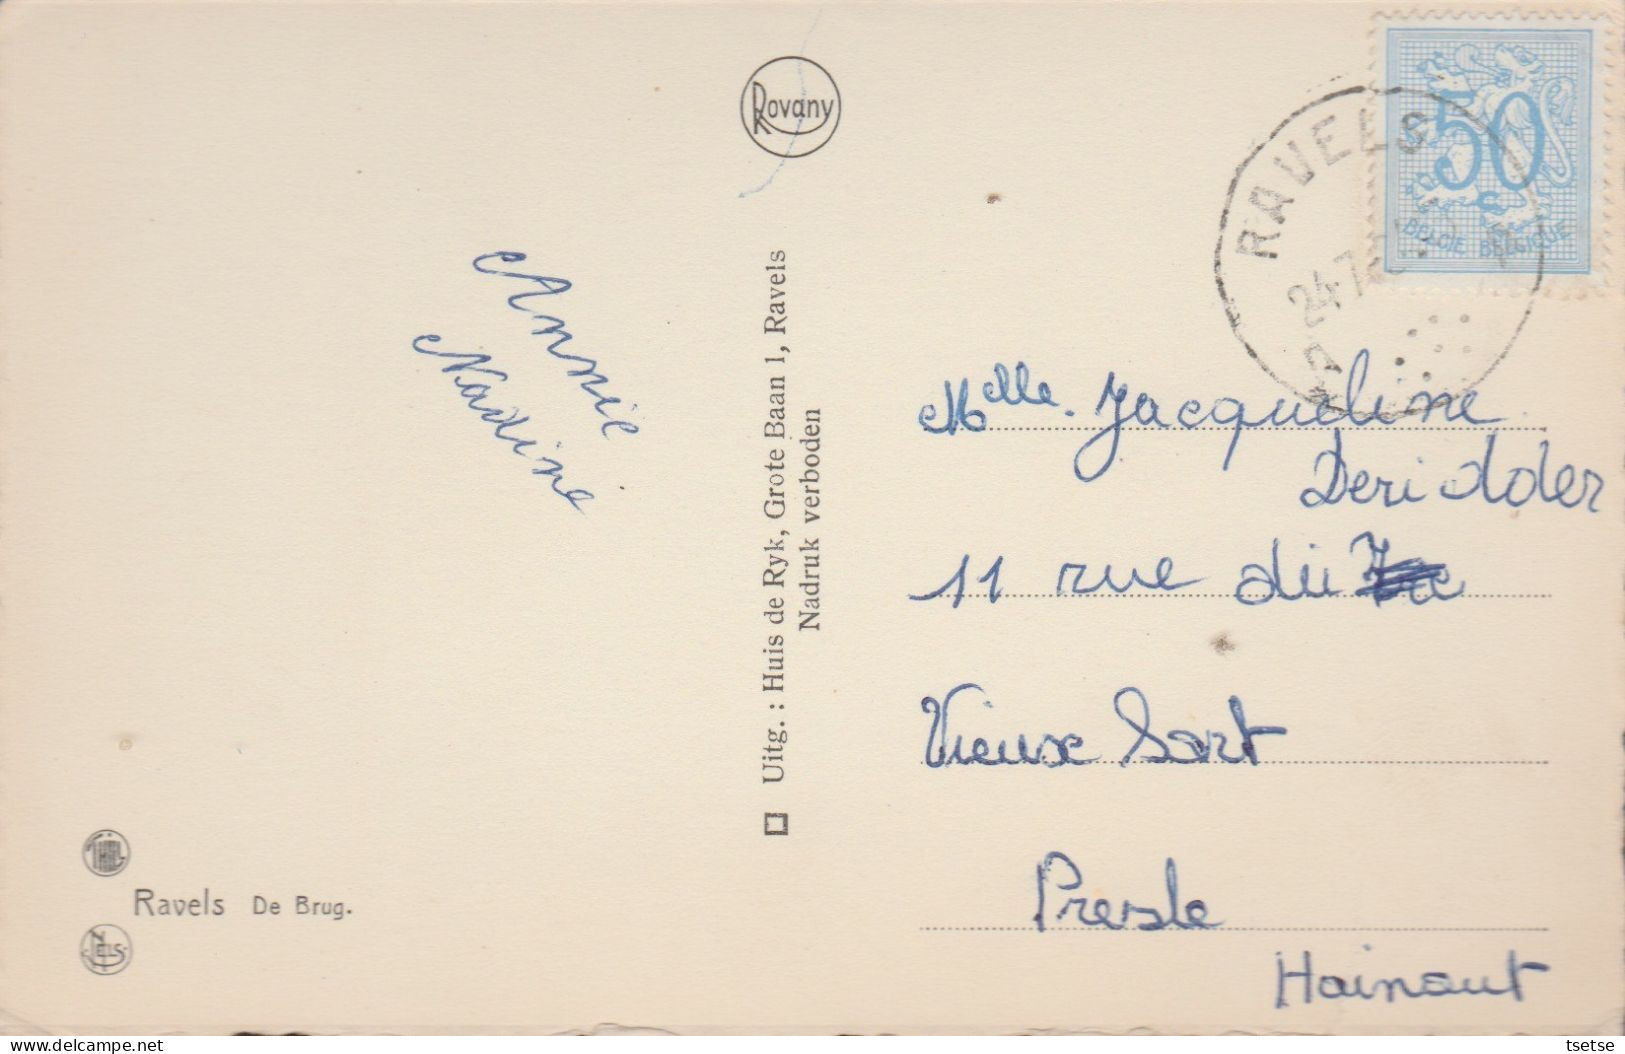 Rovany
50
BELGIE BELGIQUE
RAVELS
24-7
Annie
Nadine
Uitg. : Huis de Ryk, Grote Baan 1, Ravels
Nadruk verboden
Mlle. Jacqueline
Deridder
11 rue du
Vieux Sart
Presle
Hainaut
THILL
Ravels De Brug.
NELS
tsetse